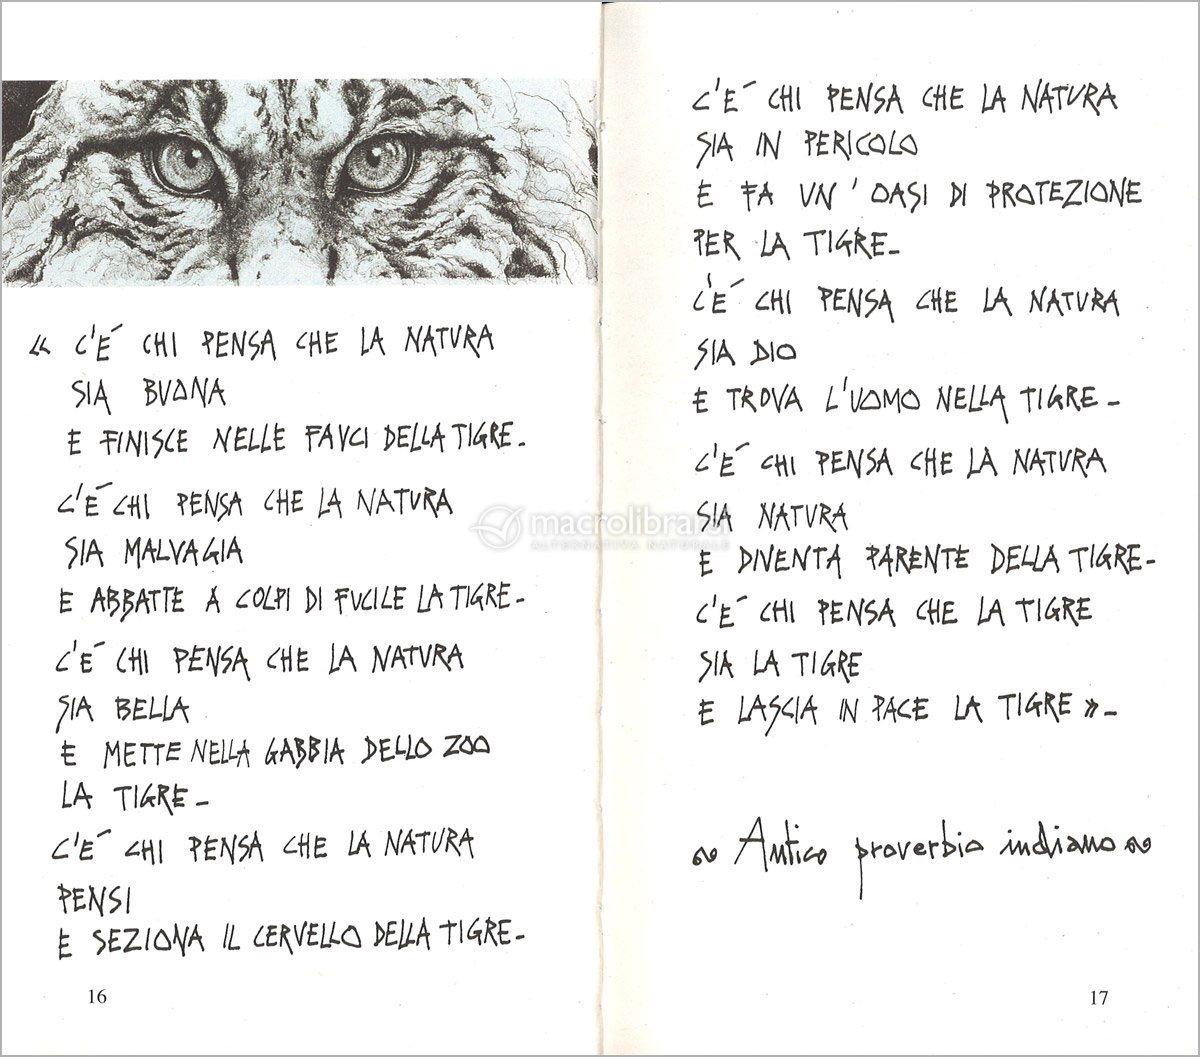 « C'É CHI PENSA CHE LA NATURA
SIA BUONA
E FINISCE NELLE FAUCI DELLA TIGRE_
C'É CHI PENSA CHE LA NATURA
SIA MALVAGIA
E ABBATTE A COLPI DI FUCILE LA TIGRE_
C'É CHI PENSA CHE LA NATURA
SIA BELLA
E METTE NELLA GABBIA DELLO ZOO
LA TIGRE_
C'É CHI PENSA CHE LA NATURA
PENSI
E SEZIONA IL CERVELLO DELLA TIGRE_
16
C'É CHI PENSA CHE LA NATURA
SIA IN PERICOLO
E FA UN'OASI DI PROTEZIONE
PER LA TIGRE_
C'É CHI PENSA CHE LA NATURA
SIA DIO
E TROVA L'UOMO NELLA TIGRE_
C'É CHI PENSA CHE LA NATURA
SIA NATURA
E DIVENTA PARENTE DELLA TIGRE_
C'É CHI PENSA CHE LA TIGRE
SIA LA TIGRE
E LASCIA IN PACE LA TIGRE »_
~ Antico proverbio indiano ~
17
macrolibrarsi
ALTERNATIVA NATURALE